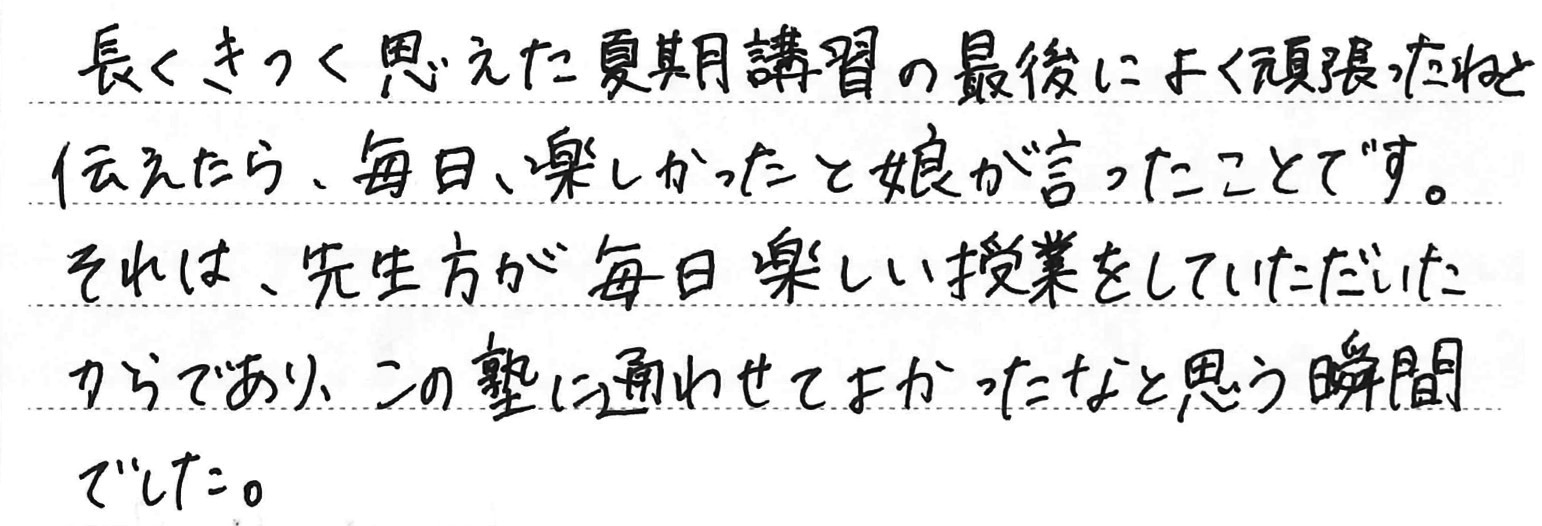 長くきつく思えた夏期講習の最後によく頑張ったねと
伝えたら、毎日、楽しかったと娘が言ったことです。
それは、先生方が毎日楽しい授業をしていただいた
からであり、この塾に通わせてよかったなと思う瞬間
でした。